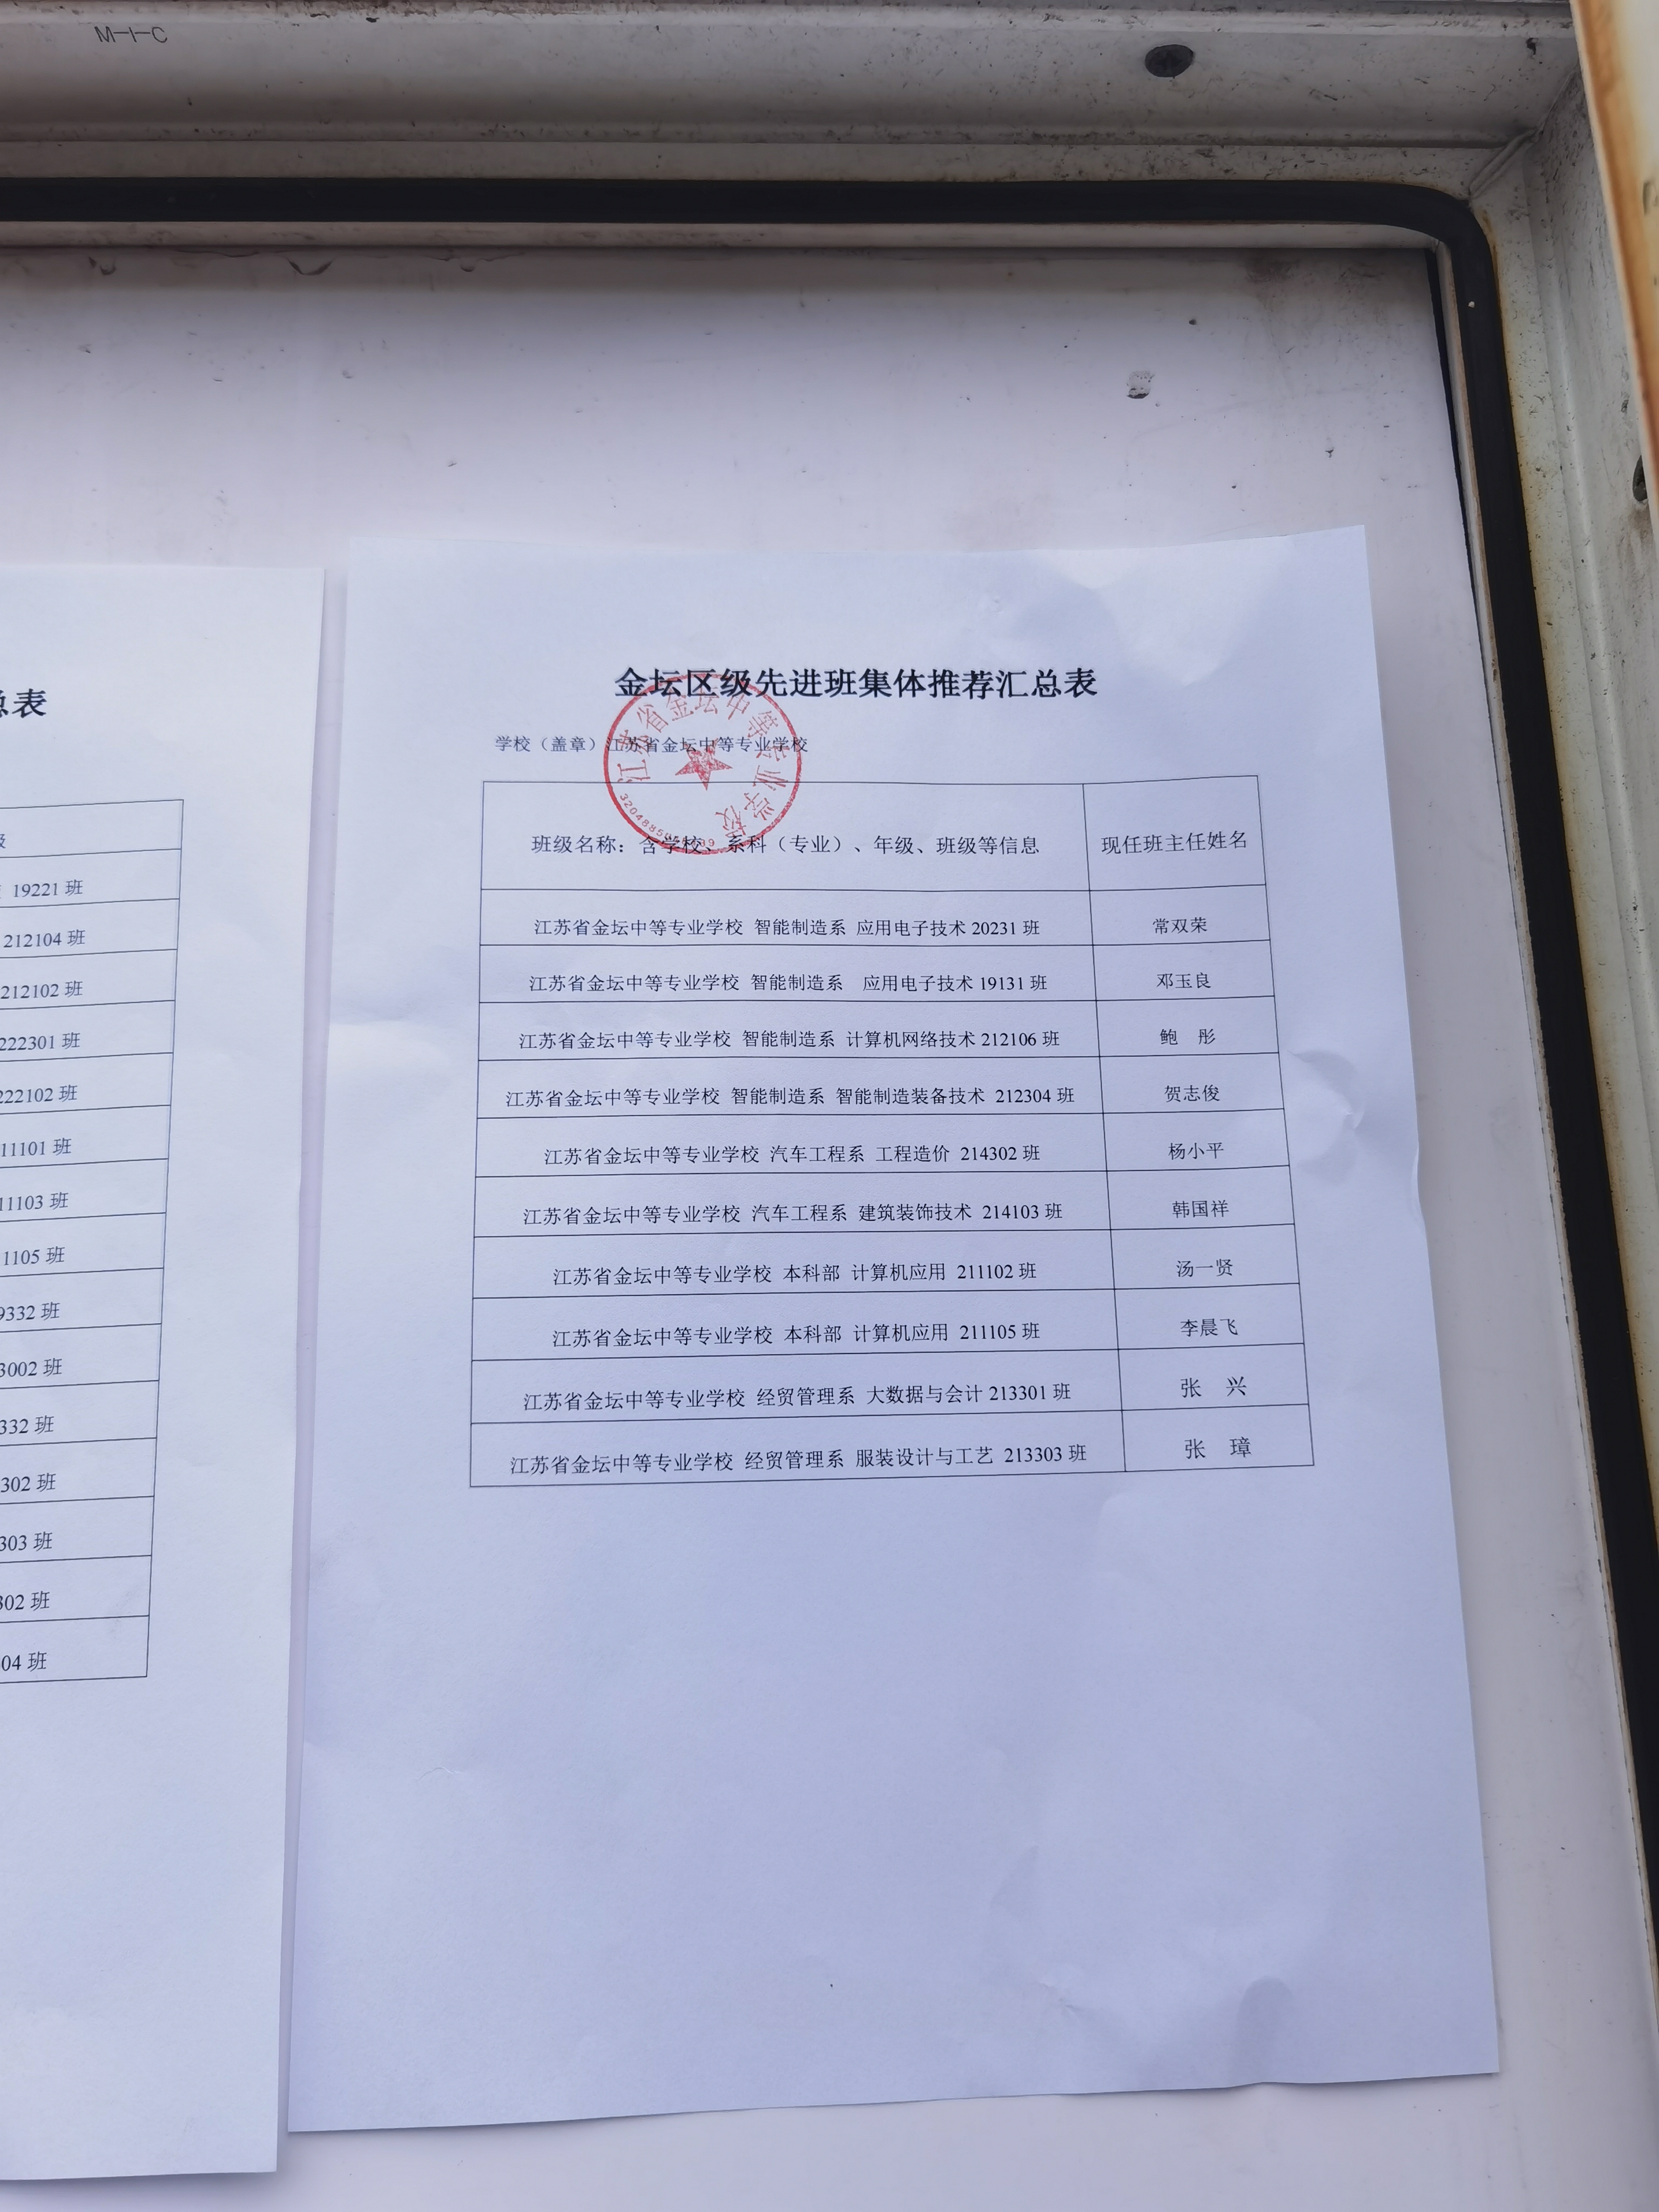 M-I-C
总表
级
19221 班
212104 班
212102 班
222301 班
222102 班
11101 班
11103 班
1105 班
9332 班
3002 班
332 班
302 班
303 班
302 班
04 班
金坛区级先进班集体推荐汇总表
学校（盖章）江苏省金坛中等专业学校
江苏省金坛中等专业学校
班级名称：含学校、系科（专业）、年级、班级等信息 现任班主任姓名
江苏省金坛中等专业学校 智能制造系 应用电子技术 20231 班 常双荣
江苏省金坛中等专业学校 智能制造系 应用电子技术 19131 班 邓玉良
江苏省金坛中等专业学校 智能制造系 计算机网络技术 212106 班 鲍 彤
江苏省金坛中等专业学校 智能制造系 智能制造装备技术 212304 班 贺志俊
江苏省金坛中等专业学校 汽车工程系 工程造价 214302 班 杨小平
江苏省金坛中等专业学校 汽车工程系 建筑装饰技术 214103 班 韩国祥
江苏省金坛中等专业学校 本科部 计算机应用 211102 班 汤一贤
江苏省金坛中等专业学校 本科部 计算机应用 211105 班 李晨飞
江苏省金坛中等专业学校 经贸管理系 大数据与会计 213301 班 张 兴
江苏省金坛中等专业学校 经贸管理系 服装设计与工艺 213303 班 张 璋